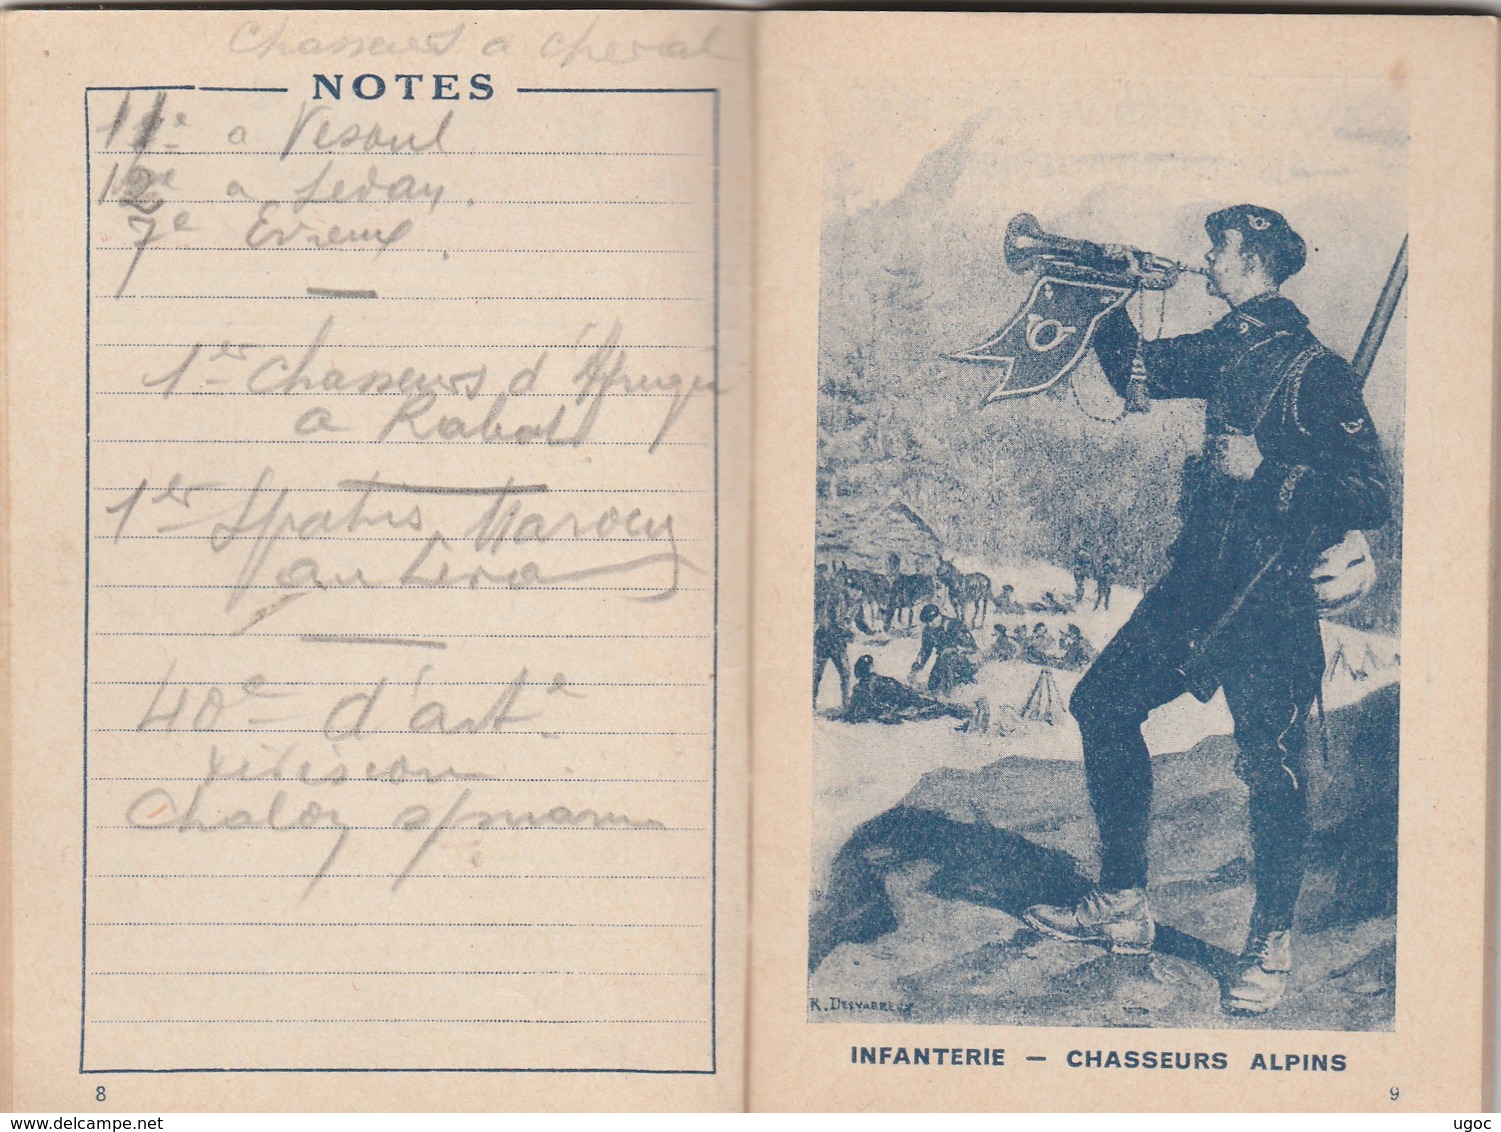 Chasseurs a cheval
NOTES
11e a Vesoul
12e a Sedan.
7e Evreux.
1er chasseurs d'Afrique
a Rabat
1er Spahis Maroc
au Leva
40e d'arte
division
Chalon s/marne
8
R. DESVARREUX
INFANTERIE — CHASSEURS ALPINS
9
delcampe.net
ugoc